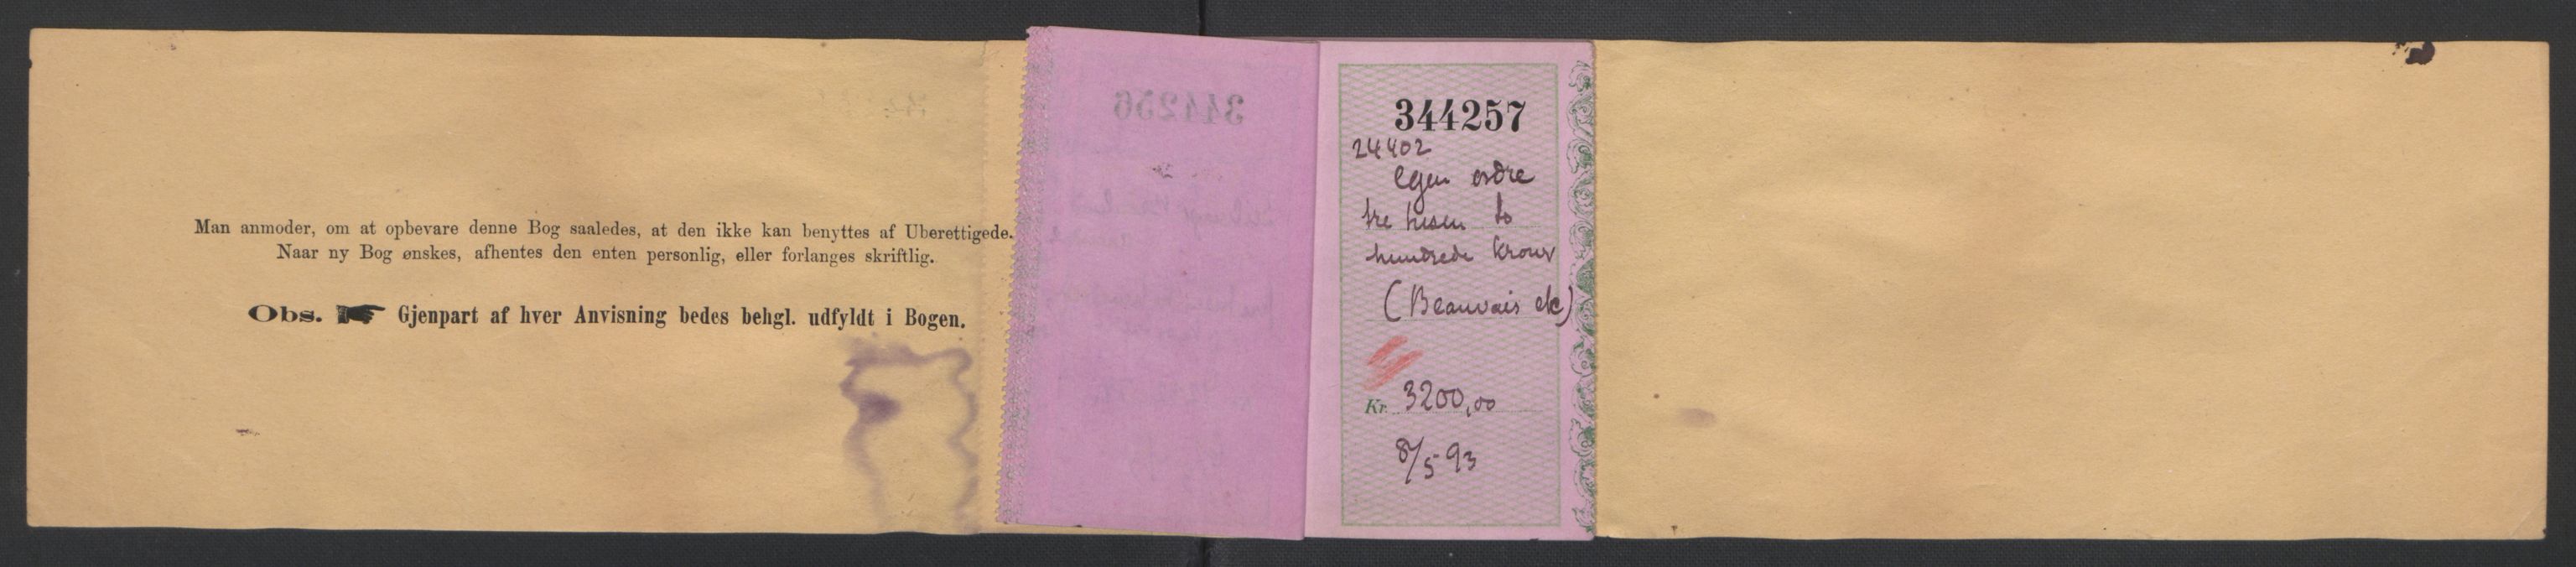 Man anmoder, om at opbevare denne Bog saaledes, at den ikke kan benyttes af Uberettigede.
Naar ny Bog ønskes, afhentes den enten personlig, eller forlanges skriftlig.
Obs. Gjenpart af hver Anvisning bedes behgl. udfyldt i Bogen.
344256
344257
24402
Egen ordre
tre tusen to
hundrede kroner
(Beauvais etc)
Kr. 3200,00
8/5 93